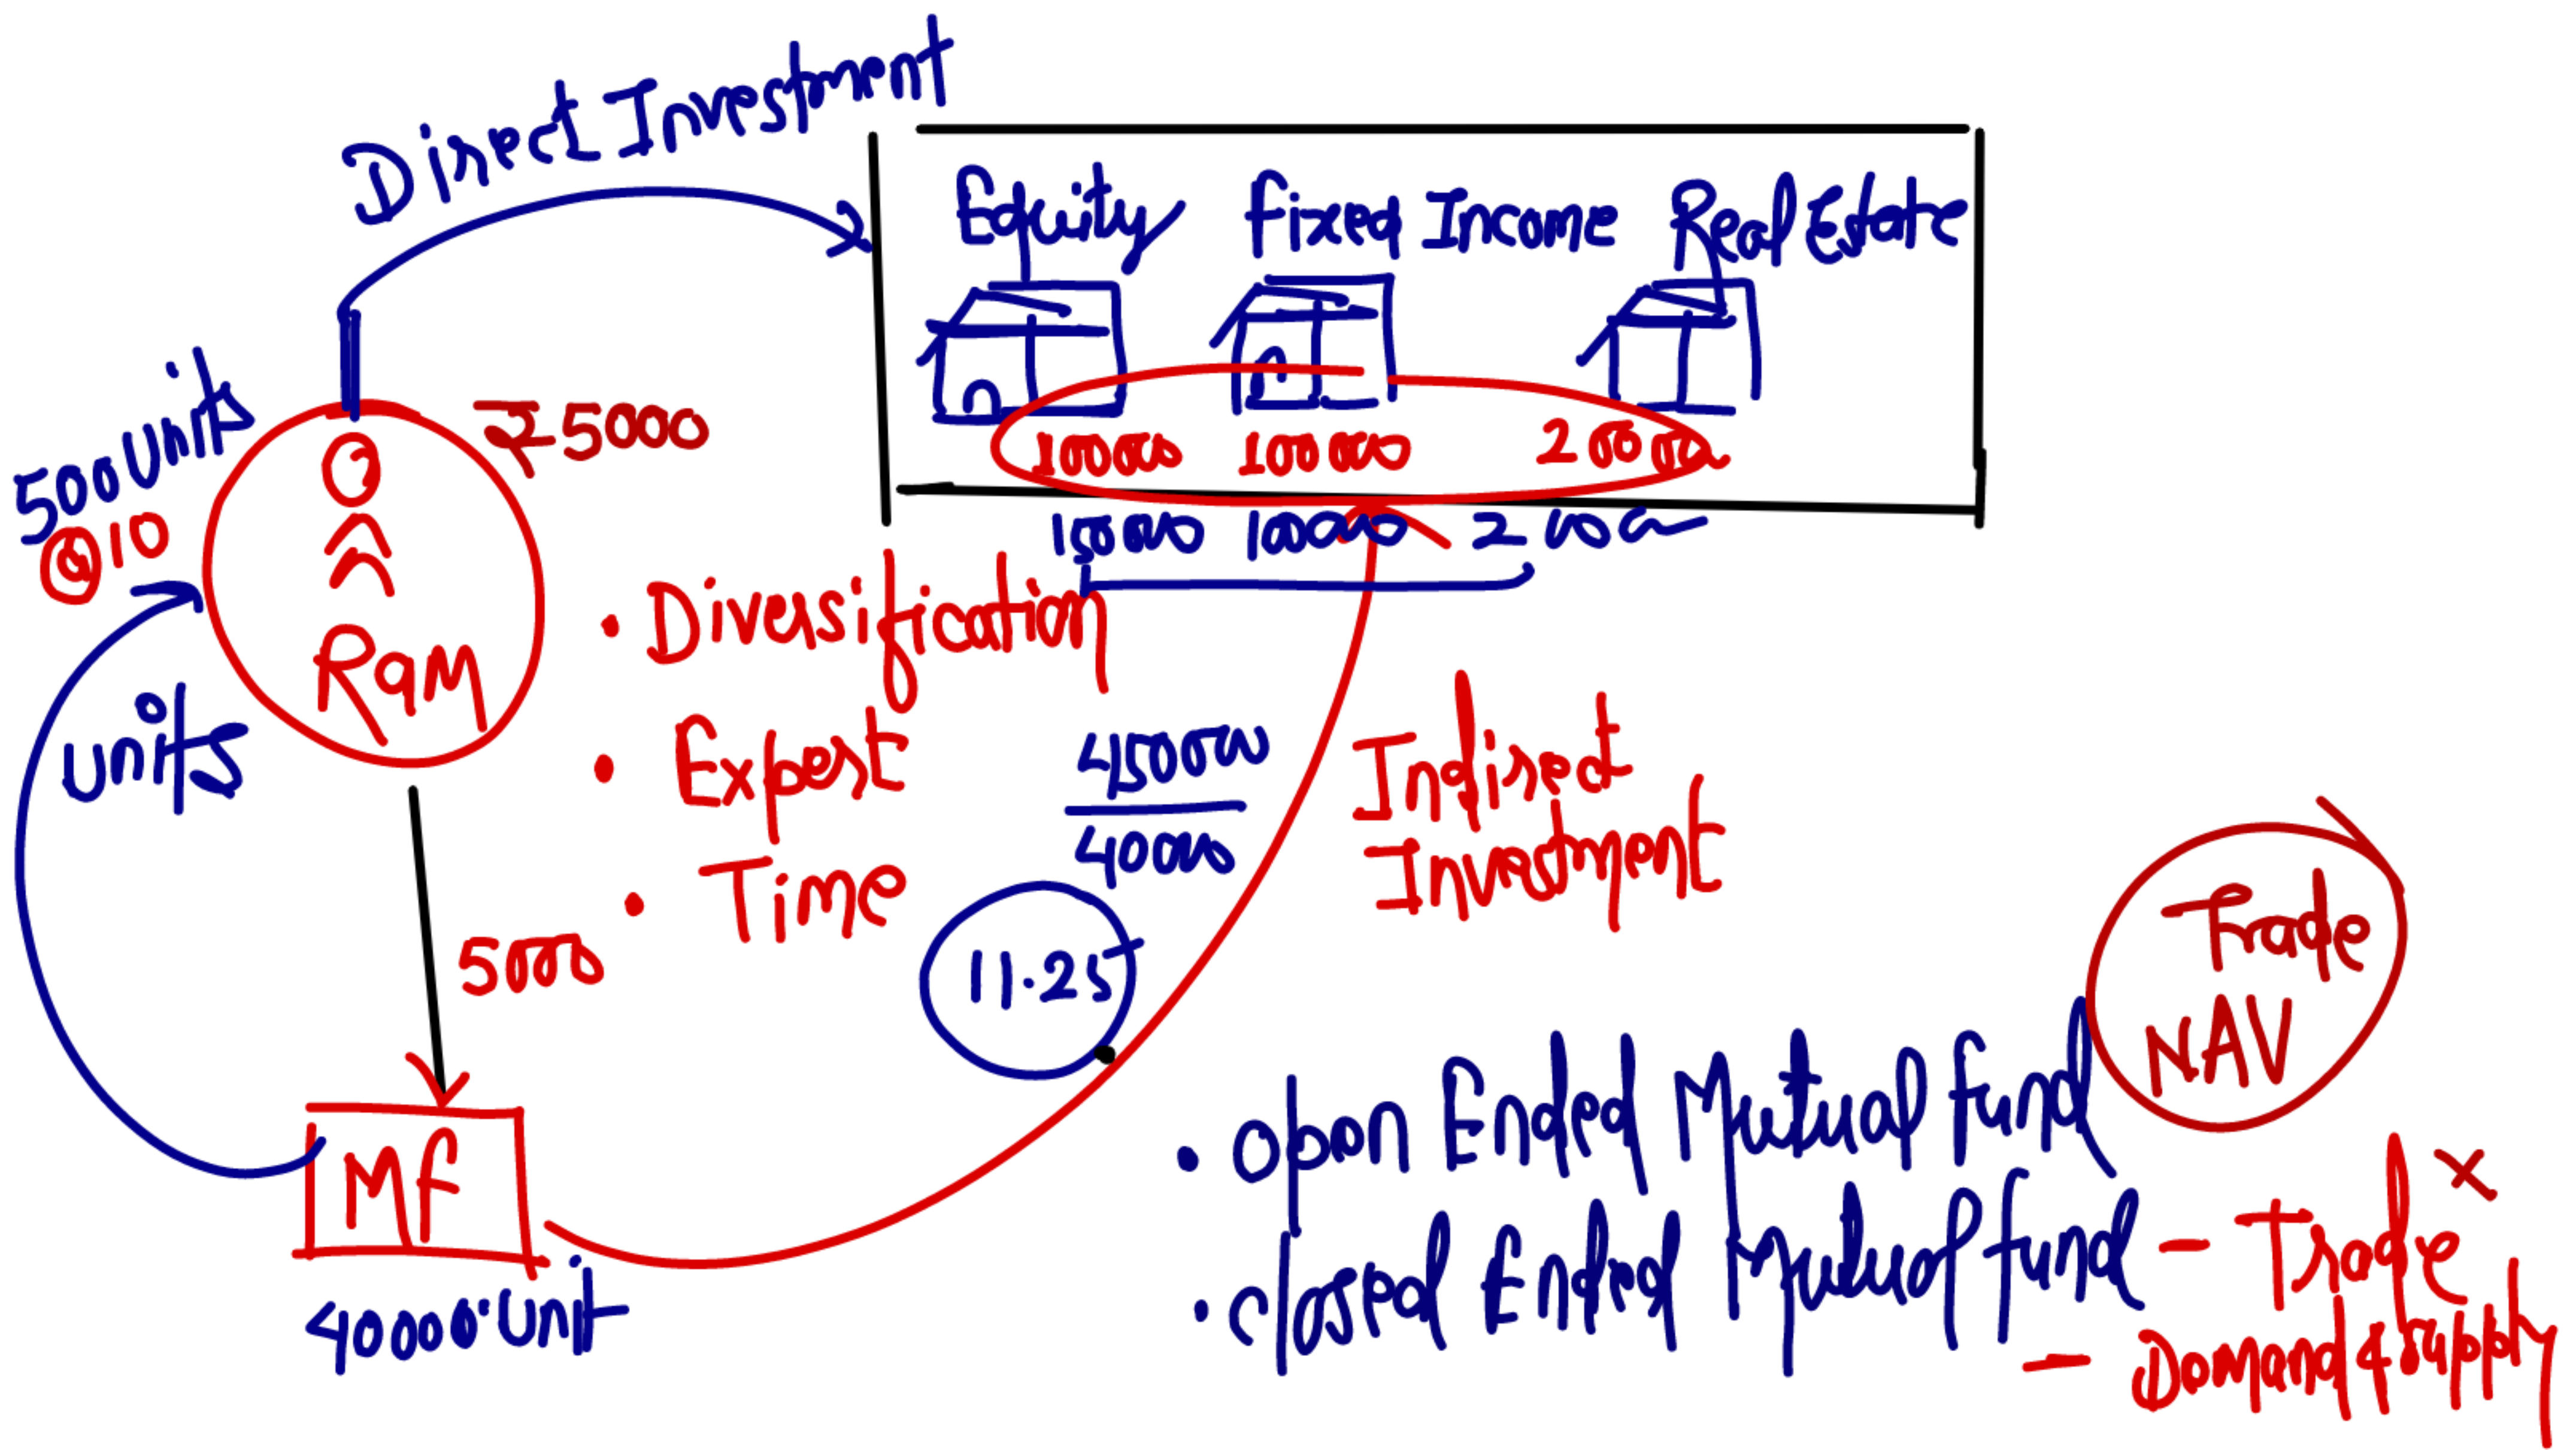 Direct Investment
Equity Fixed Income Real Estate
500 Units
@10
₹5000
100000 100000 200000
150000 100000
Ram
units
• Diversification
• Expert
• Time
5000
450000
40000
11.25
Indirect
Investment
MF
40000 Unit
Trade
NAV
• Open Ended Mutual Fund
• Closed Ended Mutual Fund - Trade ×
- Demand & Supply